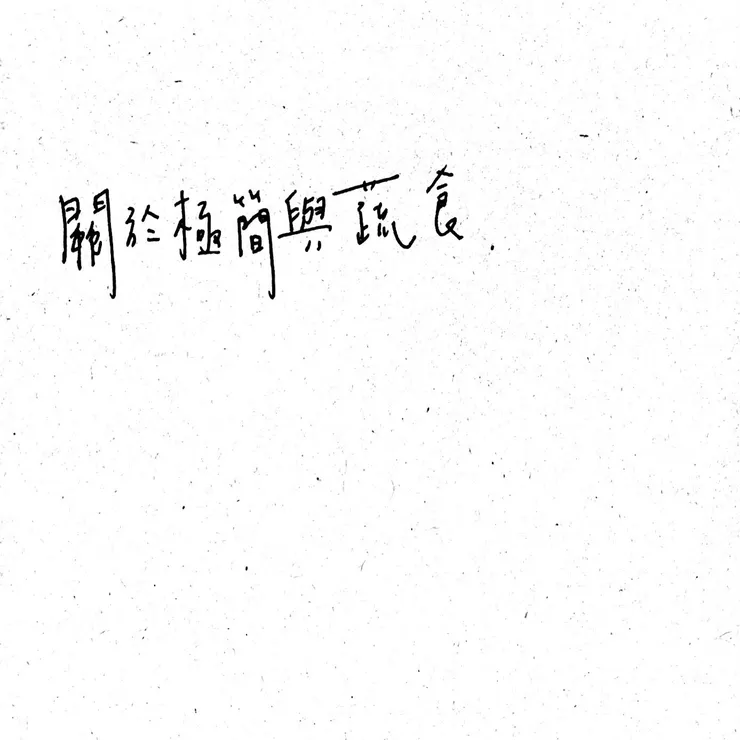 關於極簡與蔬食.